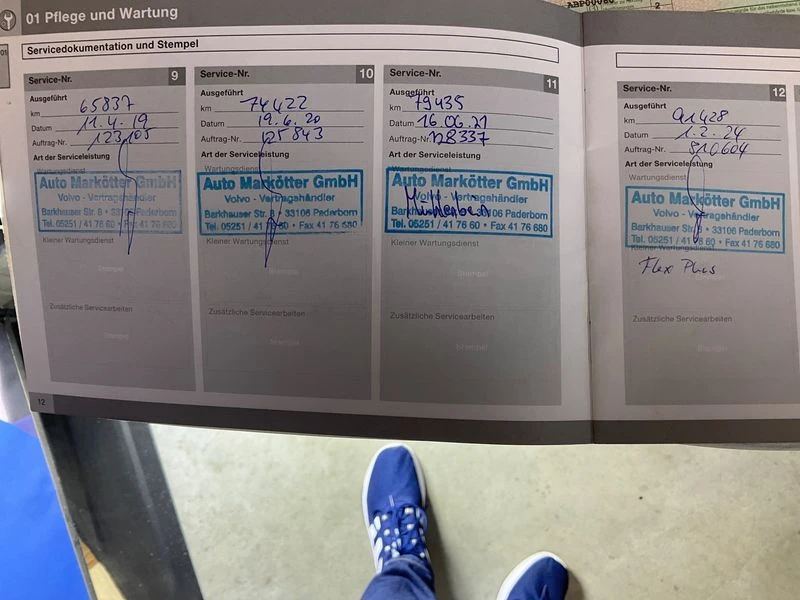 01 Pflege und Wartung
Servicedokumentation und Stempel
Service-Nr. 9
Ausgeführt
km 65837
Datum 11.4.19
Auftrag-Nr. 123105
Art der Serviceleistung
Wartungsdienst
Auto Markötter GmbH
Volvo - Vertragshändler
Barkhauser Str. 8 • 33106 Paderborn
Tel. 05251 / 41 76 60 • Fax 41 76 680
Kleiner Wartungsdienst
Stempel
Zusätzliche Servicearbeiten
Stempel
12
Service-Nr. 10
Ausgeführt
km 74422
Datum 19.6.20
Auftrag-Nr. 125843
Art der Serviceleistung
Wartungsdienst
Auto Markötter GmbH
Volvo - Vertragshändler
Barkhauser Str. 8 • 33106 Paderborn
Tel. 05251 / 41 76 60 • Fax 41 76 680
Kleiner Wartungsdienst
Stempel
Zusätzliche Servicearbeiten
Stempel
Service-Nr. 11
Ausgeführt
km 79435
Datum 16.06.21
Auftrag-Nr. 128337
Art der Serviceleistung
Wartungsdienst
Auto Markötter GmbH
Volvo - Vertragshändler
Barkhauser Str. 8 • 33106 Paderborn
Tel. 05251 / 41 76 60 • Fax 41 76 680
Kleiner Wartungsdienst
Stempel
Zusätzliche Servicearbeiten
Stempel
Service-Nr. 12
Ausgeführt
km 91428
Datum 1.2.24
Auftrag-Nr. 810604
Art der Serviceleistung
Wartungsdienst
Auto Markötter GmbH
Volvo - Vertragshändler
Barkhauser Str. 8 • 33106 Paderborn
Tel. 05251 / 41 76 60 • Fax 41 76 680
Kleiner Wartungsdienst
Flex Plus
Zusätzliche Servicearbeiten
Stempel